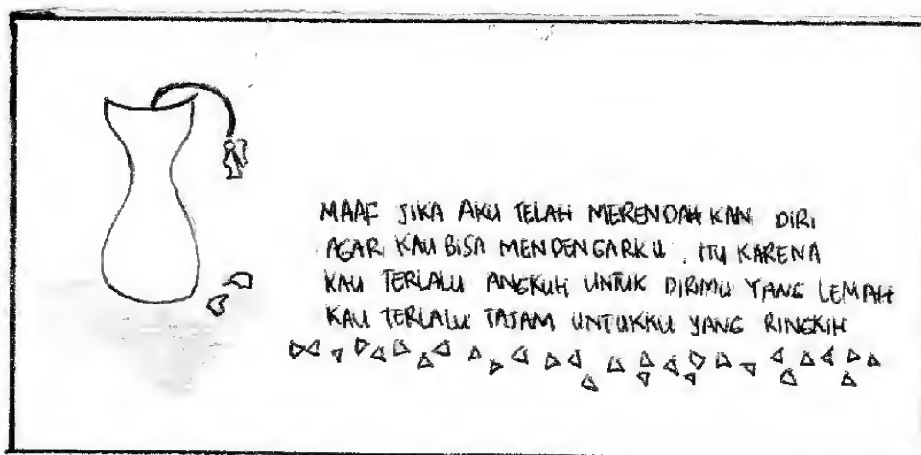 MAAF JIKA AKU TELAH MERENDAHKAN DIRI
AGAR KAU BISA MENDENGARKU, ITU KARENA
KAU TERLALU ANGKUH UNTUK DIRIMU YANG LEMAH
KAU TERLALU TAJAM UNTUKKU YANG RINGKIH